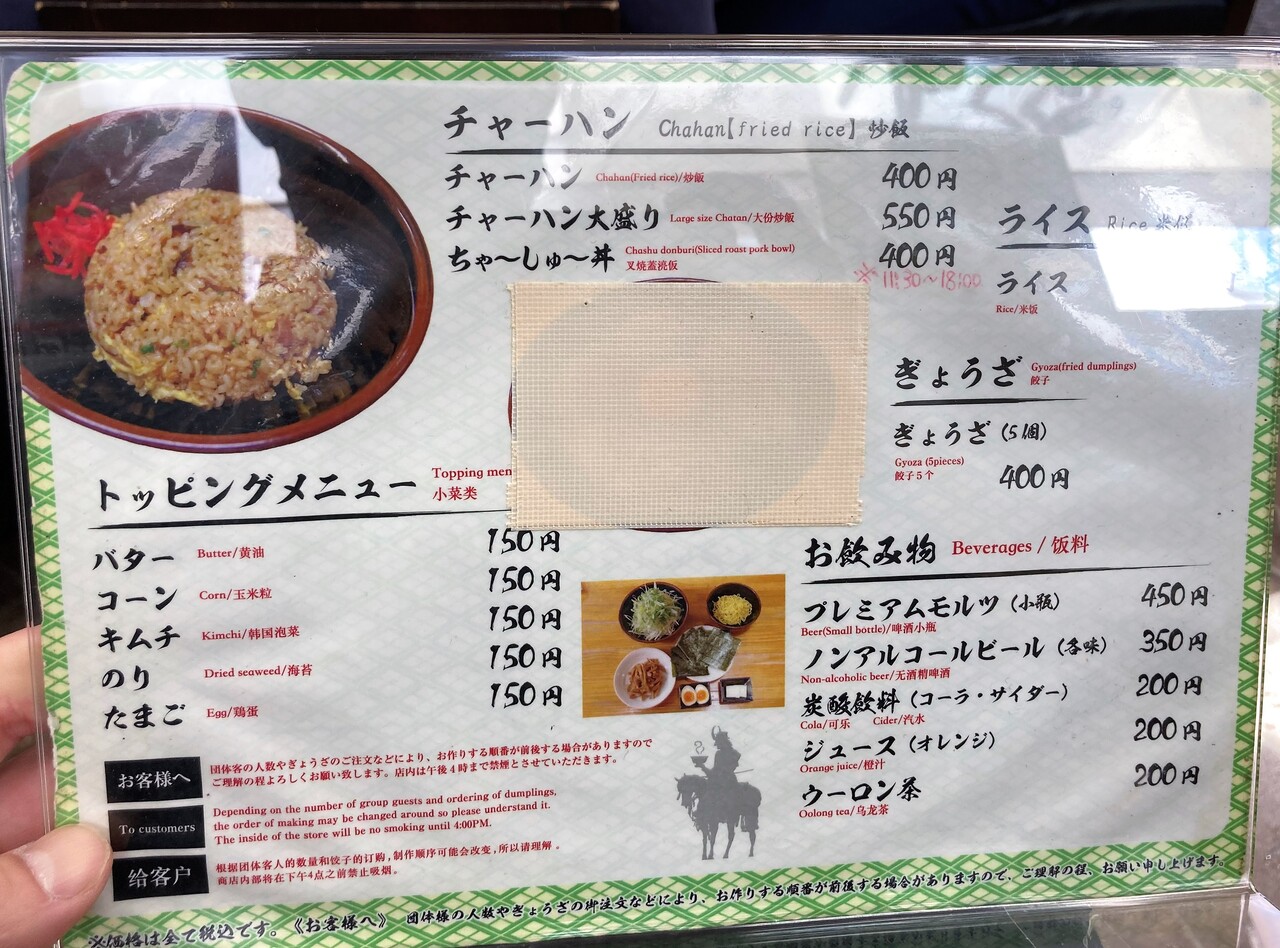 チャーハン Chahan【fried rice】 炒飯
チャーハン Chahan(Fried rice)/炒飯 400円
チャーハン大盛り Large size Chatan/大份炒飯 550円
ちゃ〜しゅ〜丼 Chashu donburi(Sliced roast pork bowl) 400円
叉焼蓋澆仮
※11:30〜18:00
ライス Rice
ライス
Rice/米饭
ぎょうざ Gyoza(fried dumplings)
餃子
ぎょうざ(5個)
Gyoza (5pieces)
餃子5个
400円
トッピングメニュー Topping men
小菜类
バター Butter/黄油 150円
コーン Corn/玉米粒 150円
キムチ Kimchi/韩国泡菜 150円
のり Dried seaweed/海苔 150円
たまご Egg/鶏蛋 150円
お飲み物 Beverages / 饭料
プレミアムモルツ(小瓶) 450円
Beer(Small bottle)/啤酒小瓶
ノンアルコールビール(各味) 350円
Non-alcoholic beer/无酒精啤酒
炭酸飲料(コーラ・サイダー) 200円
Cola/可乐 Cider/汽水
ジュース(オレンジ) 200円
Orange juice/橙汁
ウーロン茶 200円
Oolong tea/乌龙茶
お客様へ
団体客の人数やぎょうざのご注文などにより、お作りする順番が前後する場合がありますので
ご理解の程よろしくお願い致します。店内は午後4時まで禁煙とさせていただきます。
To customers
Depending on the number of group guests and ordering of dumplings,
the order of making may be changed around so please understand it.
The inside of the store will be no smoking until 4:00PM.
给客户
根据团体客人的数量和饺子的订购,制作顺序可能会改变,所以请理解。
商店内部将在下午4点之前禁止吸烟。
※価格は全て税込です。《お客様へ》 団体様の人数やぎょうざの御注文などにより、お作りする順番が前後する場合がありますので、ご理解の程、お願い申し上げます。